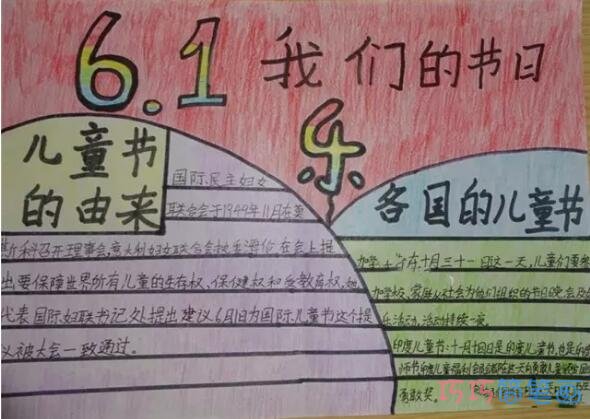 6.1 我们的节日
乐
儿童节
的由来
国际民主妇女
联合会于1949年11月在莫
斯科召开理事会,意大利妇女联合会
在会上提
出要保障世界所有儿童的生存权、保健权和受教育权,她
代表国际妇联书记处提出建议6月1日为国际儿童节这个提
议被大会一致通过。
各国的儿童节
十月三十一日这一天,儿童们
加学校、家庭
为他们组织的节日晚会及
乐活动,活动持续一夜。
印度儿童节:十月十四日是印度儿童节,也是
师节印度儿童福利
勇敢奖。